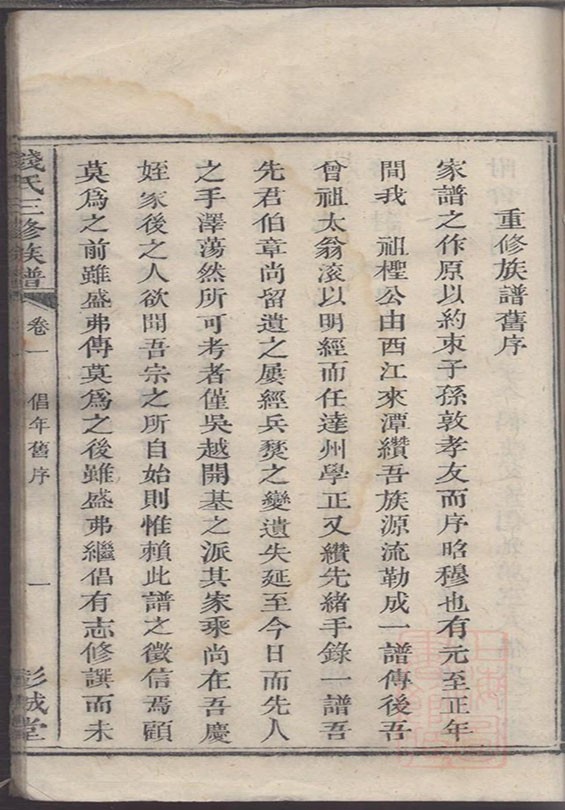 重修族譜舊序
家譜之作原以約束子孫敦孝友而序昭穆也有元至正年
間我 祖檉公由西江來潭纘吾族源流勒成一譜傳後吾
曾祖太翁滚以明經而任達州學正又纘先緒手錄一譜吾
先君伯章尚留遺之屢經兵燹之變遺失延至今日而先人
之手澤蕩然所可考者僅吳越開基之派其家乘尚在吾慶
姪家後之人欲問吾宗之所自始則惟賴此譜之徵信焉顧
莫爲之前雖盛弗傳莫爲之後雖盛弗繼倡有志修譔而未
錢氏三修族譜 卷一 倡年舊序 一 彭城堂